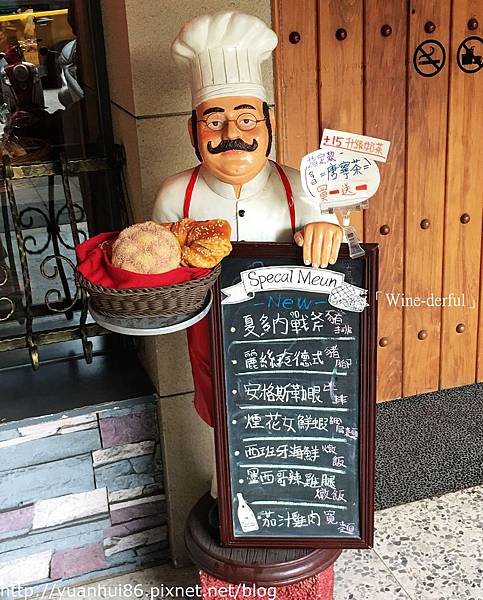 +15升級奶茶
今日
唐寧茶
買一送一
「Wine-derful」
Specal Meun
-New-
夏多內戰斧豬排
麗絲玲德式豬腳
安格斯肋眼牛排
煙花女鮮蝦麵
西班牙海鮮燉飯
墨西哥辣雞腿燉飯
茄汁雞肉寬麵
http://yuanhui86.pixnet.net/blog